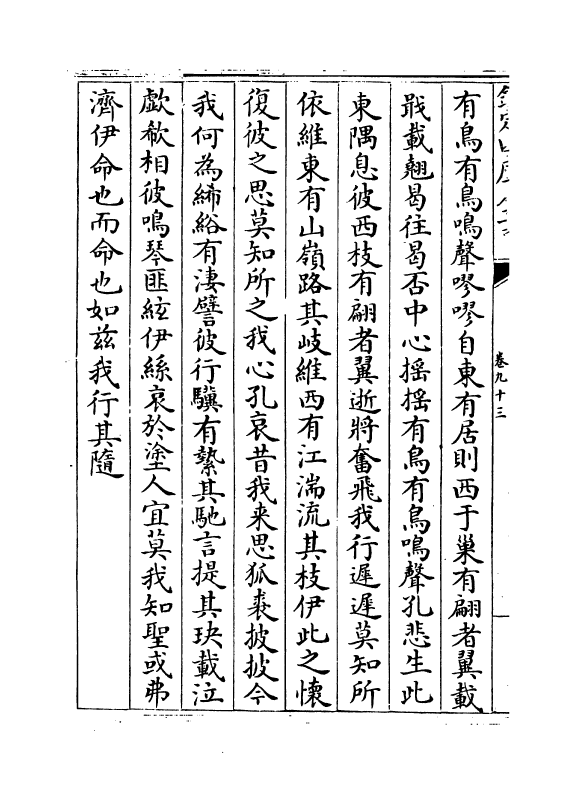 欽定四庫全書
卷九十三
有鳥有鳥鳴聲嘐嘐自東有居則西于巢有翩者翼載
戢載翹曷往曷否中心揺揺有鳥有鳥鳴聲孔悲生此
東隅息彼西枝有翩者翼逝將奮飛我行遲遲莫知所
依維東有山嶺路其岐維西有江湍流其枝伊此之懐
復彼之思莫知所之我心孔哀昔我来思狐裘披披今
我何為絺綌有淒譬彼行驥有縶其馳言提其玦載泣
歔欷相彼鳴琴匪絃伊絲哀於塗人宜莫我知聖或弗
濟伊命也而命也如兹我行其隨